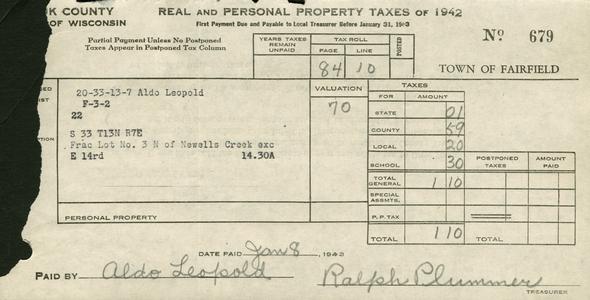 K COUNTY
OF WISCONSIN
REAL AND PERSONAL PROPERTY TAXES OF 1942
First Payment Due and Payable to Local Treasurer Before January 31, 1943
Partial Payment Unless No Postponed
Taxes Appear in Postponed Tax Column
YEARS TAXES REMAIN UNPAID
TAX ROLL
PAGE LINE
POSTED
84 10
No 679
TOWN OF FAIRFIELD
20-33-13-7 Aldo Leopold
F-3-2
22
S 33 T13N R7E
Frac Lot No. 3 N of Newells Creek exc
E 14rd 14.30A
PERSONAL PROPERTY
VALUATION
70
TAXES
FOR AMOUNT
STATE 01
COUNTY 59
LOCAL 20
SCHOOL 30
POSTPONED TAXES
AMOUNT PAID
TOTAL GENERAL 1 10
SPECIAL ASSMTS.
P. P. TAX
TOTAL 1 10 TOTAL
DATE PAID Jan 8, 1943
PAID BY Aldo Leopold Ralph Plummer
TREASURER